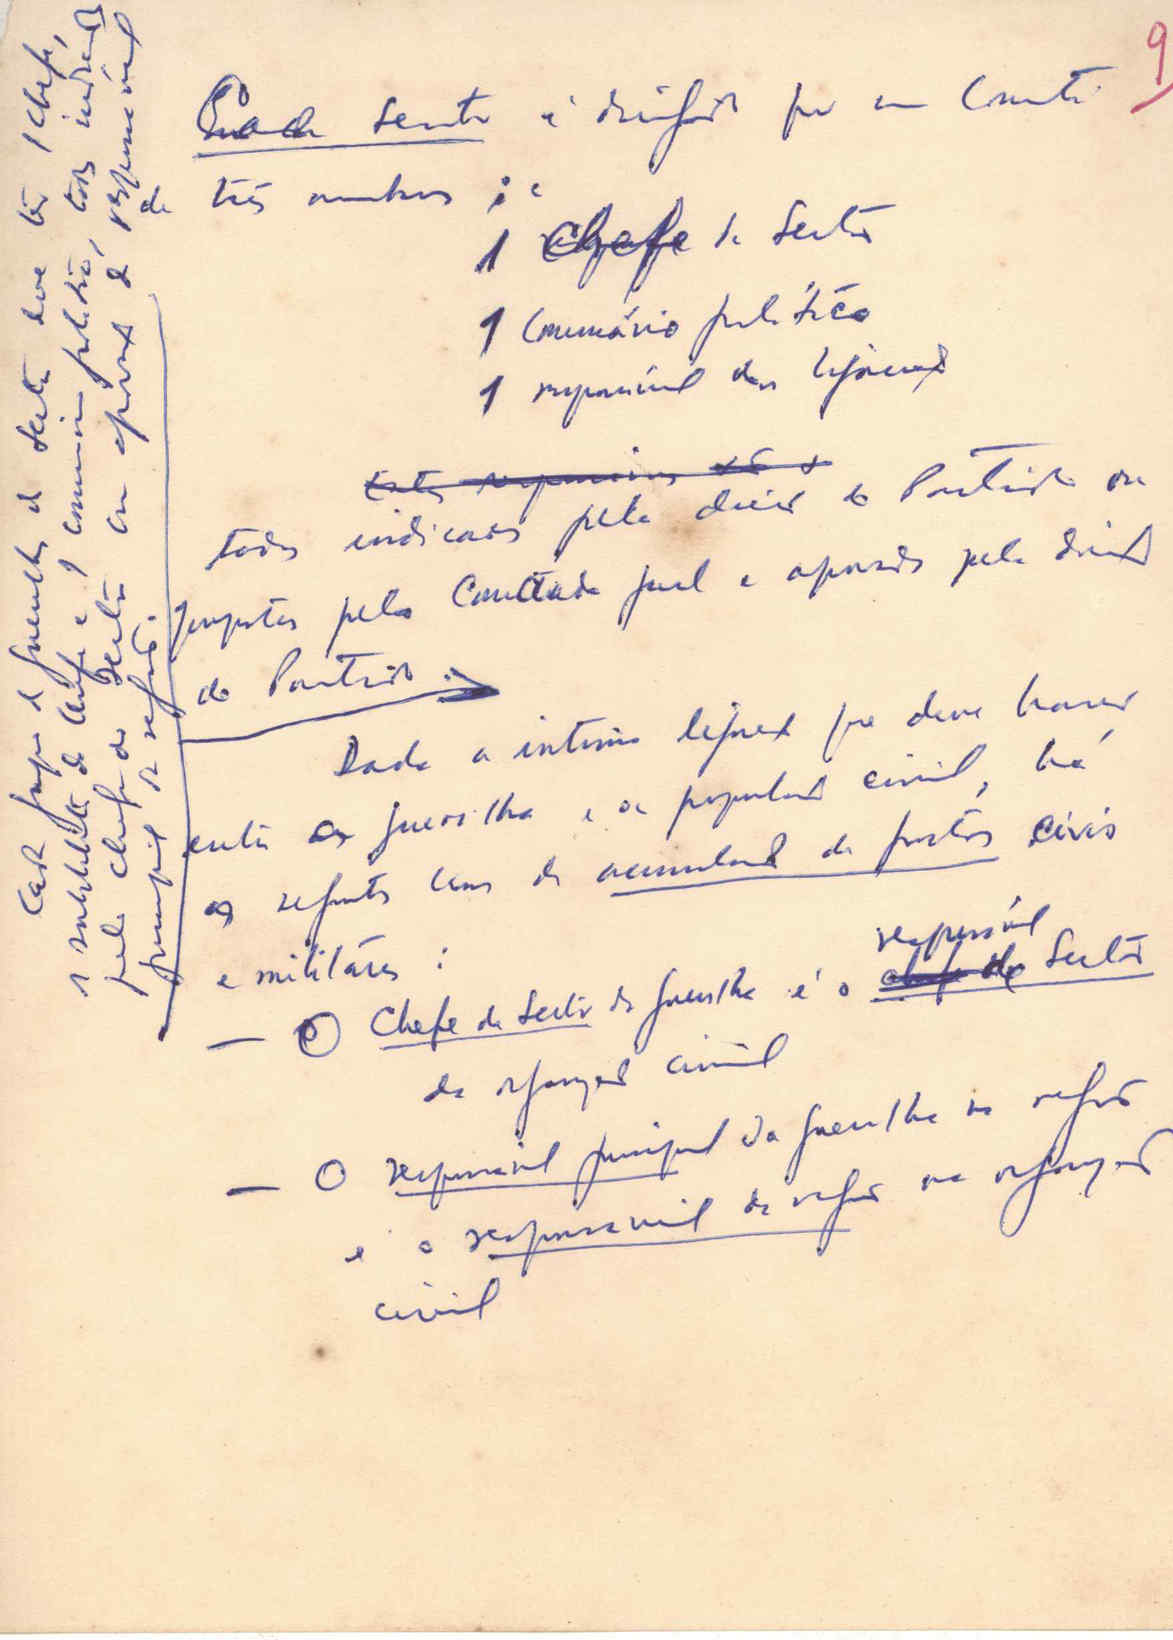 9
Cada Sector é dirigido por um Comité
três membros :
1 Chefe de Sector
1 Comissário político
1 responsável das ligações
Estes responsáveis são
todos indicados pela direcção do Partido ou
propostos pelo Comité da e aprovados pela direcção
do Partido.
Dada a íntima ligação que deve haver
entre a guerrilha e a população civil, há
os seguintes casos de acumulação de funções civis
e militares :
responsável
— O Chefe de Sector da guerrilha é o chefe do Sector
da organização civil
— O responsável principal da guerrilha na região
é o responsável da região na organização
civil
Cada grupo de guerrilha do Sector deve ter 1 chefe,
1 substituto do chefe e 1 comissário político, todos indicados
pelo chefe do Sector com aprovação do responsável
principal da região. da